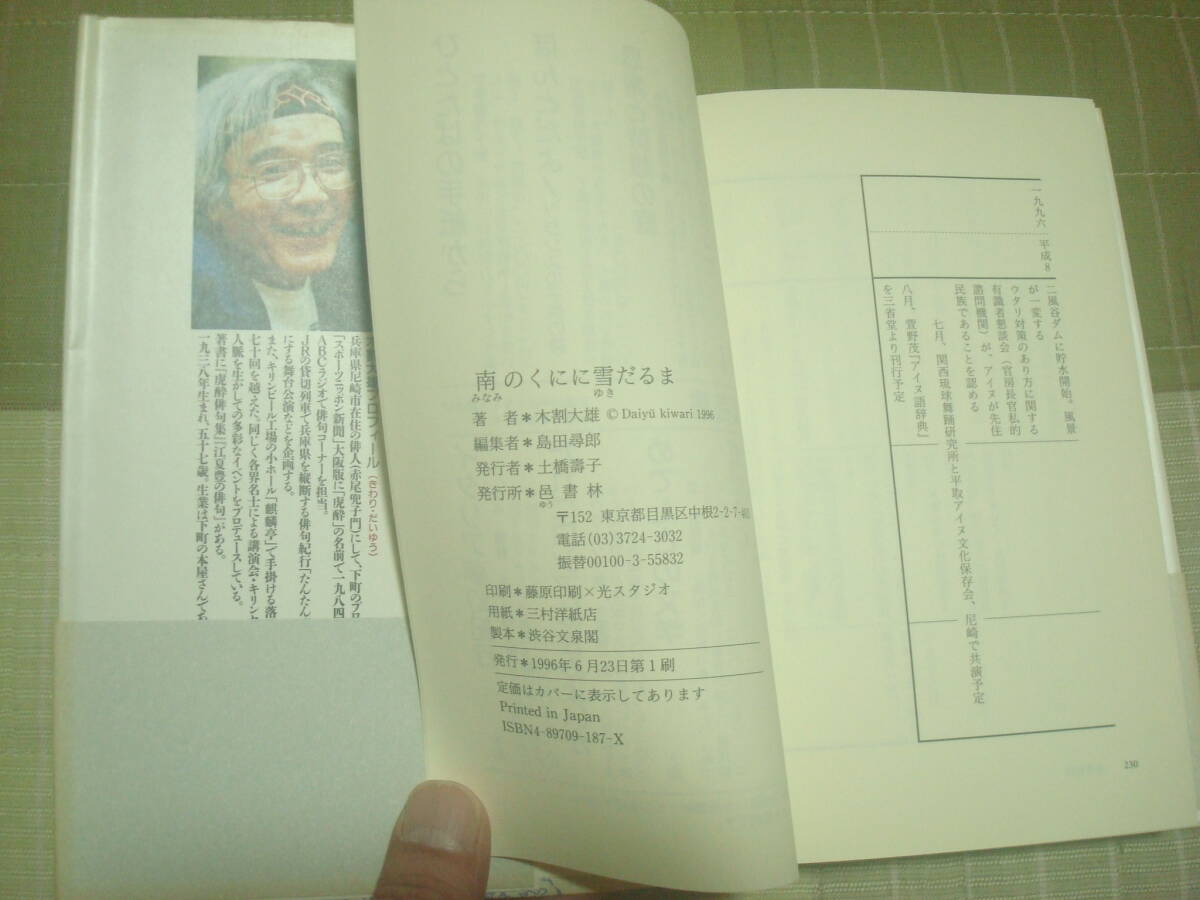 プロフィール(きわり・だいゆう)
兵庫県尼崎市在住の俳人(赤尾兜子門)にして、下町のプロ
「スポーツニッポン新聞」大阪版に「虎酔」の名前で一九八四
ABCラジオで俳句コーナーを担当。
JRの貸切列車で兵庫県を縦断する俳句紀行「たんたん
にする舞台公演などを企画する。
また、キリンビール工場の小ホール「麒麟亭」で手掛ける落
七十回を越えた。同じく各界名士による講演会・キリン
人脈を生かしての多彩なイベントをプロデュースしている。
著書に『虎酔俳句集』『江夏豊の俳句』がある。
一九三八年生まれ、五十七歳。生業は下町の本屋さんであ
南のくにに雪だるま
みなみ
ゆき
著 者*木割大雄 © Daiyū kiwari 1996
編集者*島田尋郎
発行者*土橋壽子
発行所*邑書林
ゆう
〒152 東京都目黒区中根2-2-7
電話(03)3724-3032
振替00100-3-55832
印刷*藤原印刷×光スタジオ
用紙*三村洋紙店
製本*渋谷文泉閣
発行*1996年6月23日第1刷
定価はカバーに表示してあります
Printed in Japan
ISBN4-89709-187-X
一九九六 平成8
二風谷ダムに貯水開始。風景
が一変する
ウタリ対策のあり方に関する
有識者懇談会(官房長官私的
諮問機関)が、アイヌが先住
民族であることを認める
七月、関西琉球舞踊研究所と平取アイヌ文化保存会、尼崎で共演予定
八月、萱野茂『アイヌ語辞典』
を三省堂より刊行予定
230